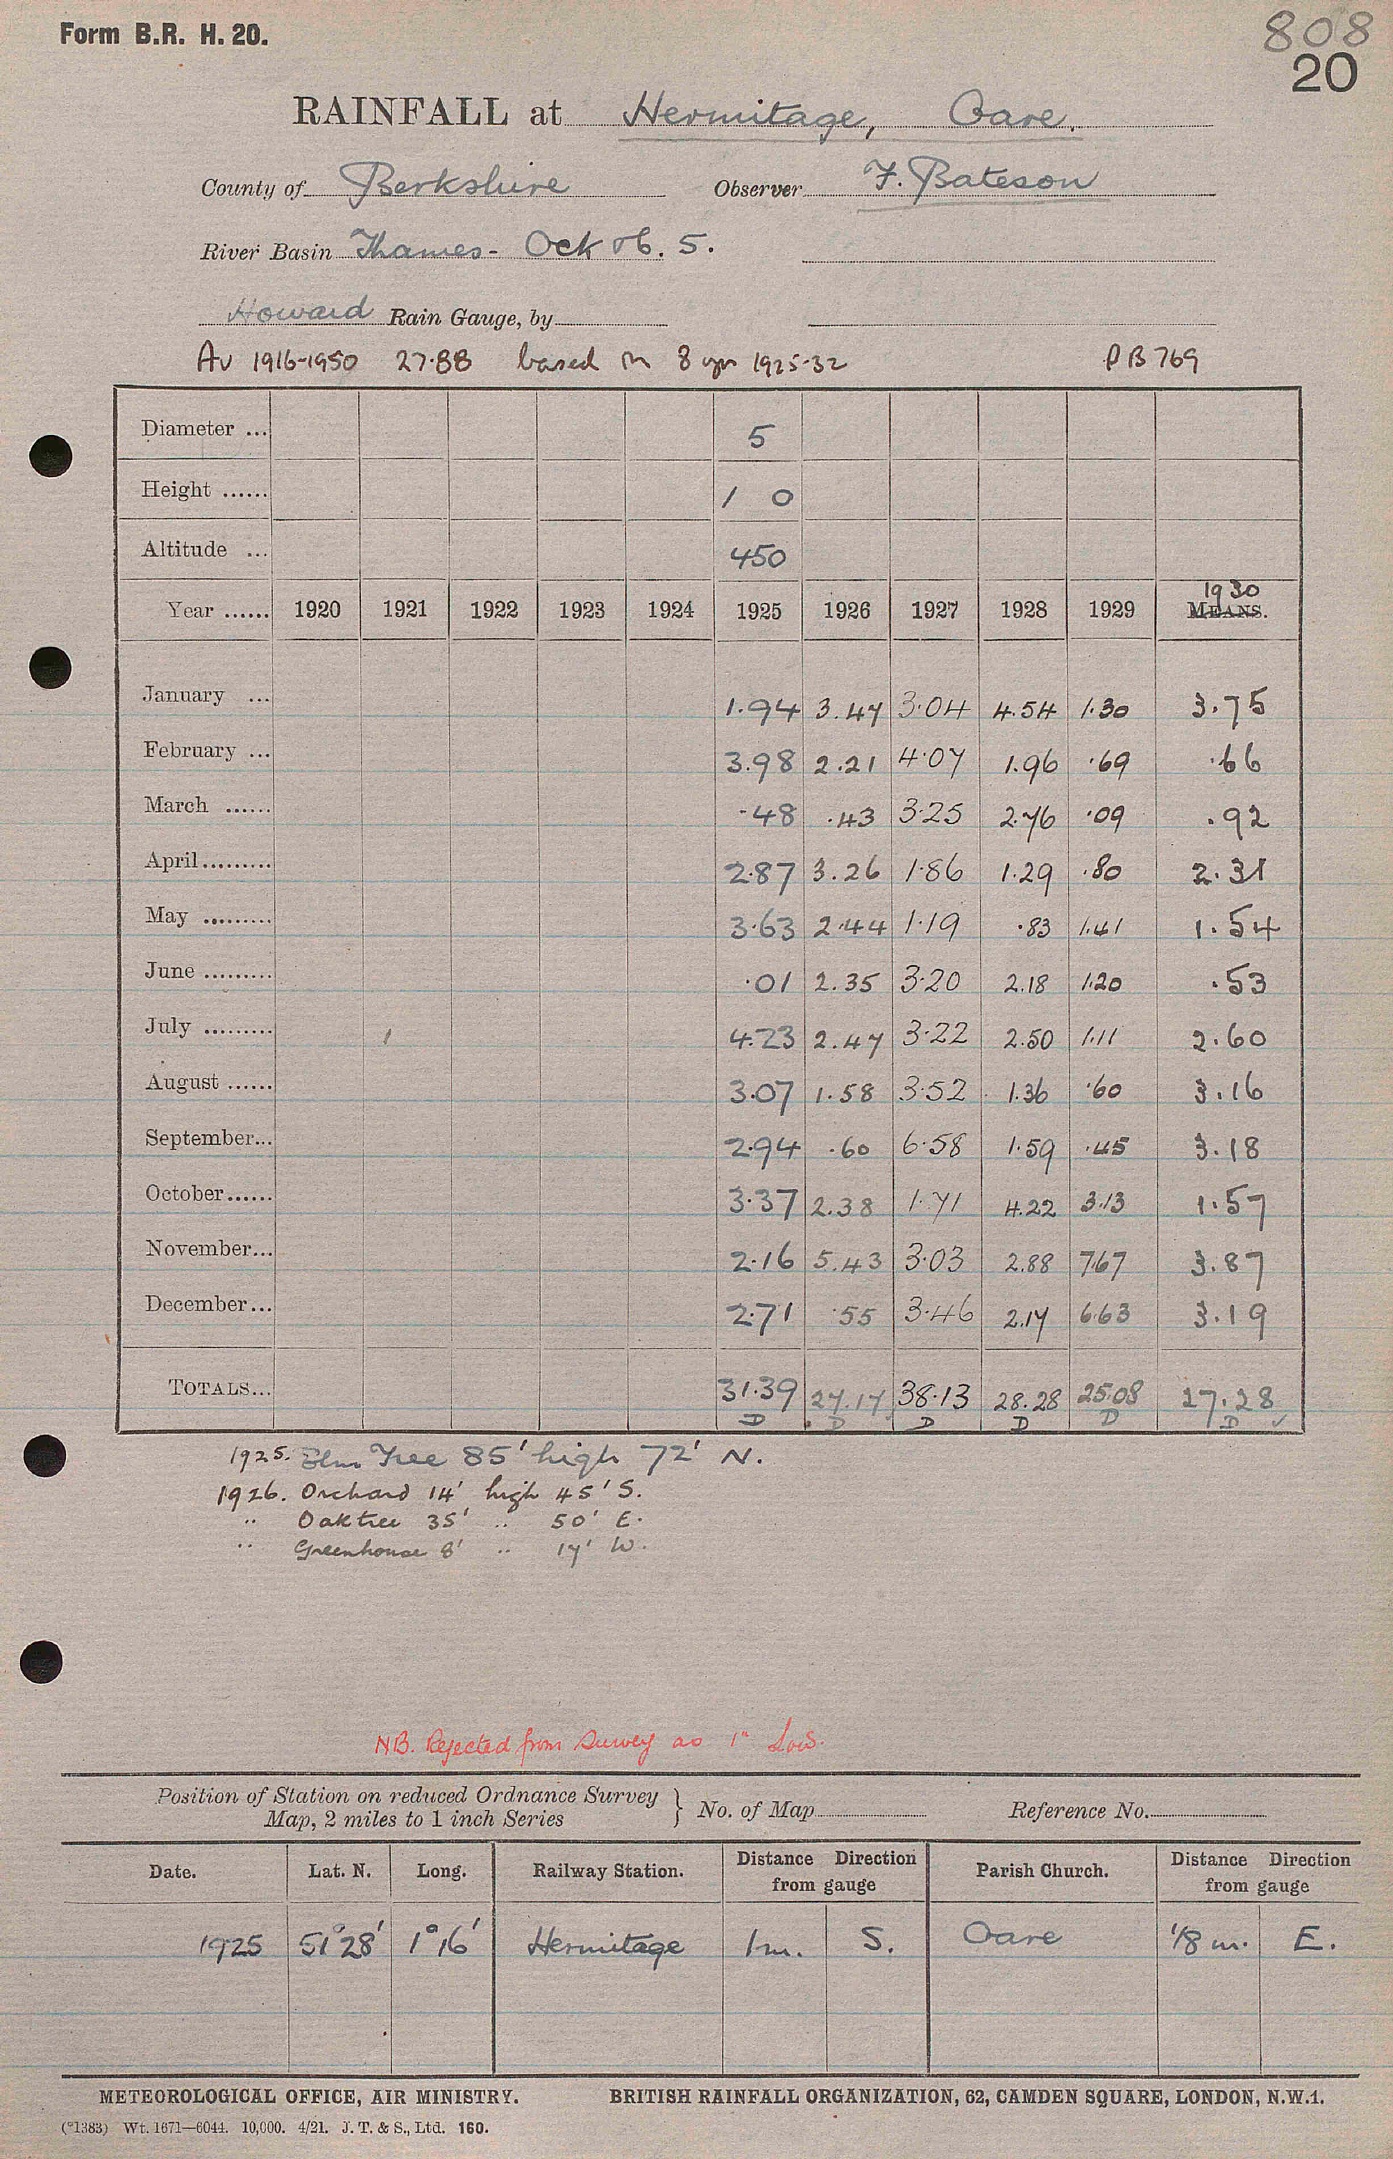 Form B.R. H. 20.
808
20
RAINFALL at Hermitage, Oare.
County of Berkshire Observer F. Bateson
River Basin Thames - Ock &c. 5.
Howard Rain Gauge, by
Av 1916-1950 27.88 based on 8 yrs 1925-32 PB 769
Diameter ... 5
Height ...... 1 0
Altitude ... 450
1930
Year ...... 1920 1921 1922 1923 1924 1925 1926 1927 1928 1929 MEANS.
January ... 1.94 3.47 3.04 4.54 1.30 3.75
February ... 3.98 2.21 4.07 1.96 .69 .66
March ...... .48 .43 3.25 2.76 .09 .92
April......... 2.87 3.26 1.86 1.29 .80 2.31
May ......... 3.63 2.44 1.19 .83 1.41 1.54
June ......... .01 2.35 3.20 2.18 1.20 .53
July ......... 4.23 2.47 3.22 2.50 1.11 2.60
August ...... 3.07 1.58 3.52 1.36 .60 3.16
September... 2.94 .60 6.58 1.59 .45 3.18
October...... 3.37 2.38 1.71 4.22 3.13 1.57
November... 2.16 5.43 3.03 2.88 7.67 3.87
December... 2.71 .55 3.46 2.17 6.63 3.19
TOTALS... 31.39 27.17 38.13 28.28 25.08 27.28
D D D D D D ✓
1925. Elm Tree 85' high 72' N.
1926. Orchard 14' high 45' S.
" Oak tree 35' " 50' E.
" Greenhouse 8' " 17' W.
NB. Rejected from Survey as 1" Low.
Position of Station on reduced Ordnance Survey
Map, 2 miles to 1 inch Series } No. of Map Reference No.
Date. Lat. N. Long. Railway Station. Distance Direction from gauge Parish Church. Distance Direction from gauge
1925 51°28' 1°16' Hermitage 1m. S. Oare 1/8 m. E.
METEOROLOGICAL OFFICE, AIR MINISTRY. BRITISH RAINFALL ORGANIZATION, 62, CAMDEN SQUARE, LONDON, N.W.1.
(*1383) Wt. 1671—6044. 10,000. 4/21. J. T. & S., Ltd. 160.